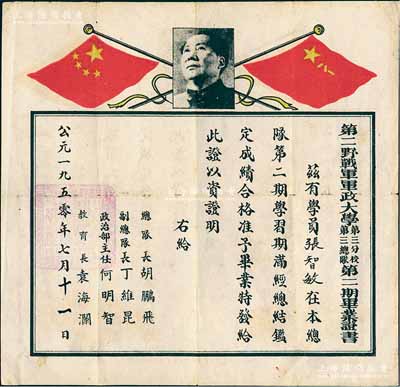 第二野戰軍軍政大學第三分校第三總隊第二期畢業證書
茲有學員張智敏在本總
隊第二期學習期滿經總結鑑
定成績合格准予畢業特發給
此證以資證明
右給
總隊長胡鵬飛
副總隊長丁維昆
政治部主任何明智
教育長袁海瀾
公元一九五零年七月十一日